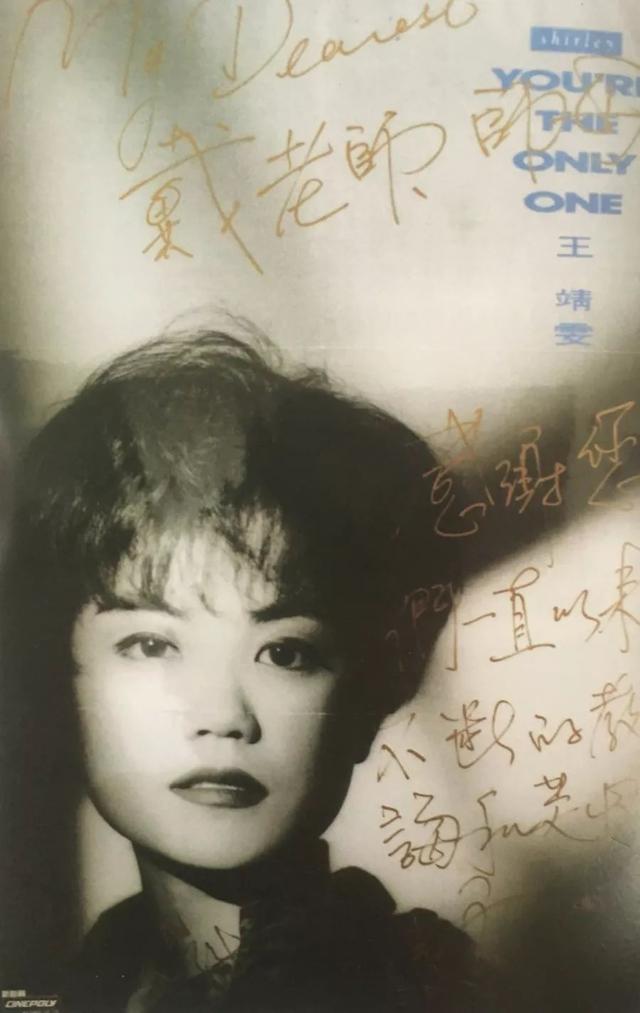 My Dearest
shirley
YOU'RE
THE
ONLY
ONE
王
靖
雯
戴老師、師
感謝您
們一直以來
不斷的教
誨和
CINEPOLY